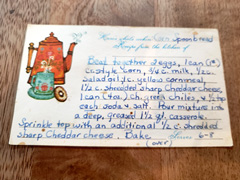 Here's what's cookin' Corn Spoon Bread
Recipe from the kitchen of
Beat together 2 eggs, 1 can (1#)
cr. style corn, 3/4 c. milk, 1/2 c.
salad oil, 1 c. yellow cornmeal,
1 1/2 c. shredded sharp Cheddar cheese,
1 can (4oz.) ch. green chiles, & 1/2 tsp
each soda & salt. Pour mixture into
a deep, greased 1 1/2 qt. casserole.
Sprinkle top with an additional 1/2 c. shredded
sharp Cheddar cheese. Bake Serves 6-8
(over)